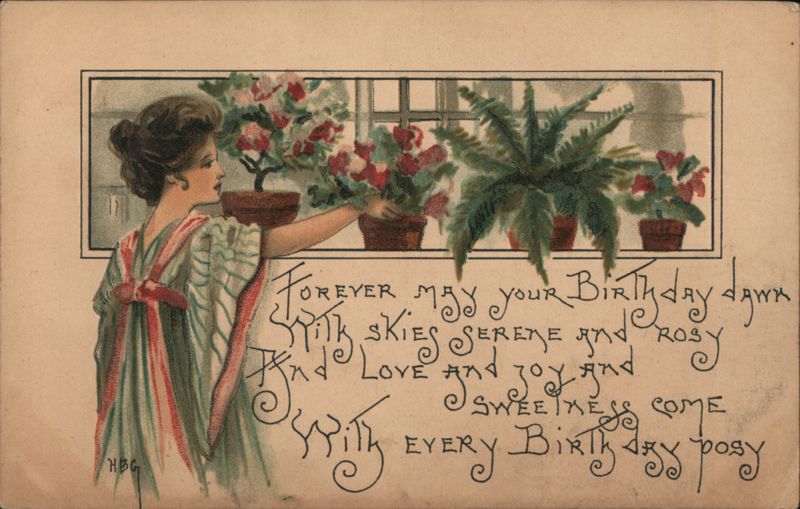 Forever may your Birthday dawn
With skies serene and rosy
And Love and joy and
sweetness come
With every Birthday posy
HBG